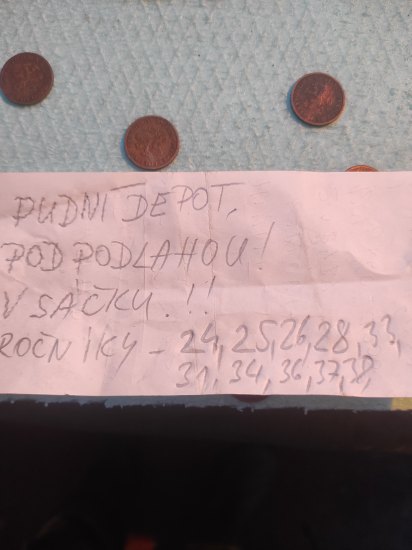 PUDNÍ DEPOT,
POD PODLAHOU!
V SÁČKU.!!
ROČNÍKY - 24, 25, 26, 28, 33,
31, 34, 36, 37, 38,